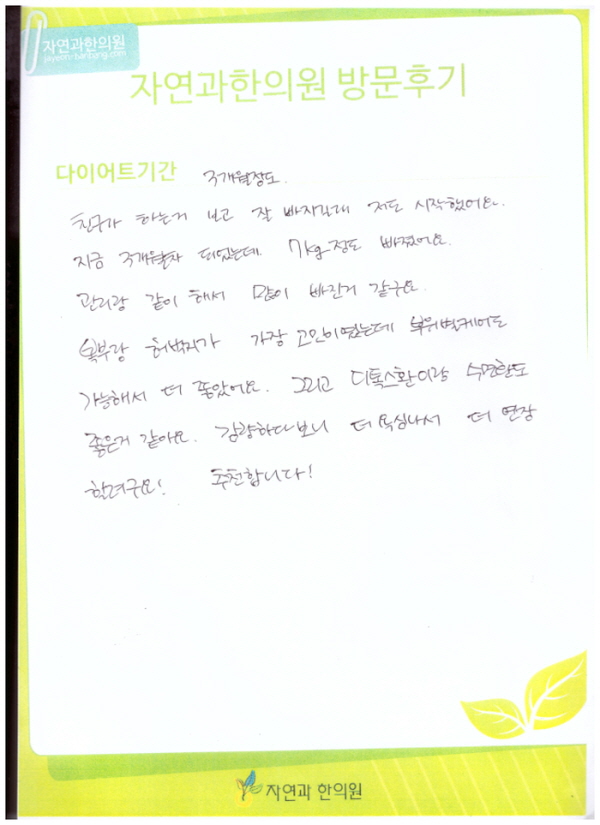 자연과한의원
자연과한의원 방문후기
다이어트기간 3개월정도.
친구가 하는거 보고 잘 빠지길래 저도 시작했어요.
지금 3개월차 되었는데 7kg정도 빠졌어요.
관리랑 같이 해서 많이 빠진거 같구요.
복부랑 허벅지가 가장 고민이였는데 부위별케어도
가능해서 더 좋았어요. 그리고 디톡스환이랑 수면환도
좋은거 같아요. 감량하다보니 더 욕심나서 더 연장
할려구요! 추천합니다!
자연과 한의원